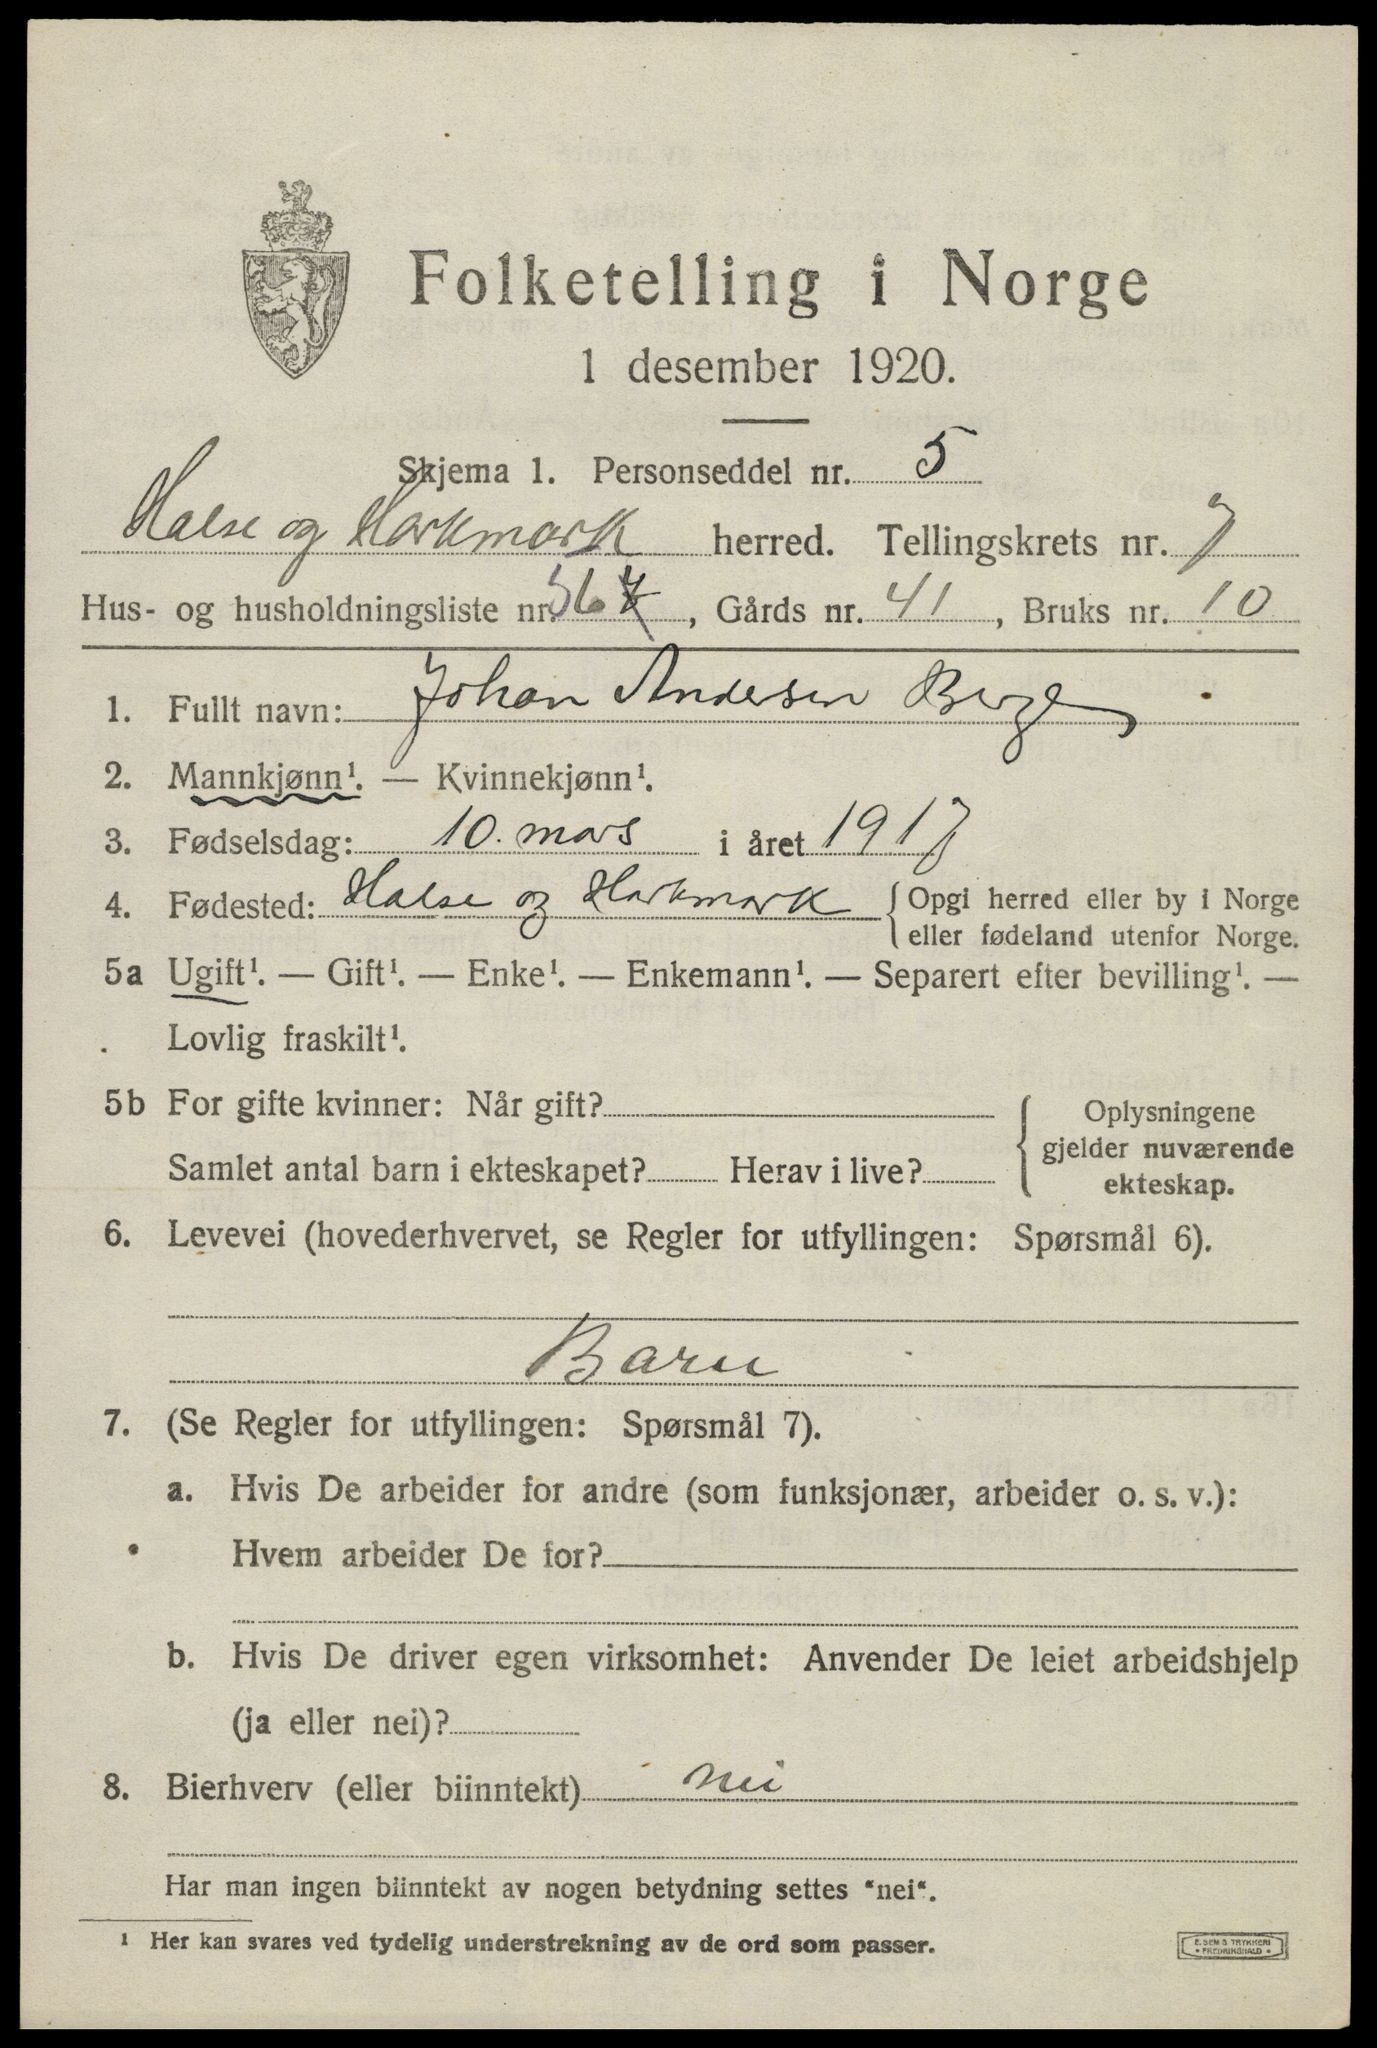 Folketelling i Norge
1 desember 1920.
Skjema 1. Personseddel nr. 5
Halse og Harkmark herred. Tellingskrets nr. 7
Hus- og husholdningsliste nr. 36, Gårds nr. 41, Bruks nr. 10
1. Fullt navn: Johan Andersen Berge
2. Mannkjønn¹. — Kvinnekjønn¹.
3. Fødselsdag: 10. mars i året 1917
4. Fødested: Halse og Harkmark { Opgi herred eller by i Norge
eller fødeland utenfor Norge.
5a Ugift¹. — Gift¹. — Enke¹. — Enkemann¹. — Separert efter bevilling¹. —
Lovlig fraskilt¹.
5b For gifte kvinner: Når gift?
Samlet antal barn i ekteskapet? Herav i live?
{ Oplysningene
gjelder nuværende
ekteskap.
6. Levevei (hovederhvervet, se Regler for utfyllingen: Spørsmål 6).
Barn
7. (Se Regler for utfyllingen: Spørsmål 7).
a. Hvis De arbeider for andre (som funksjonær, arbeider o. s. v.):
Hvem arbeider De for?
b. Hvis De driver egen virksomhet: Anvender De leiet arbeidshjelp
(ja eller nei)?
8. Bierhverv (eller biinntekt) nei
Har man ingen biinntekt av nogen betydning settes "nei".
¹ Her kan svares ved tydelig understrekning av de ord som passer.
E. SEMS TRYKKERI
• FREDRIKSHALD •